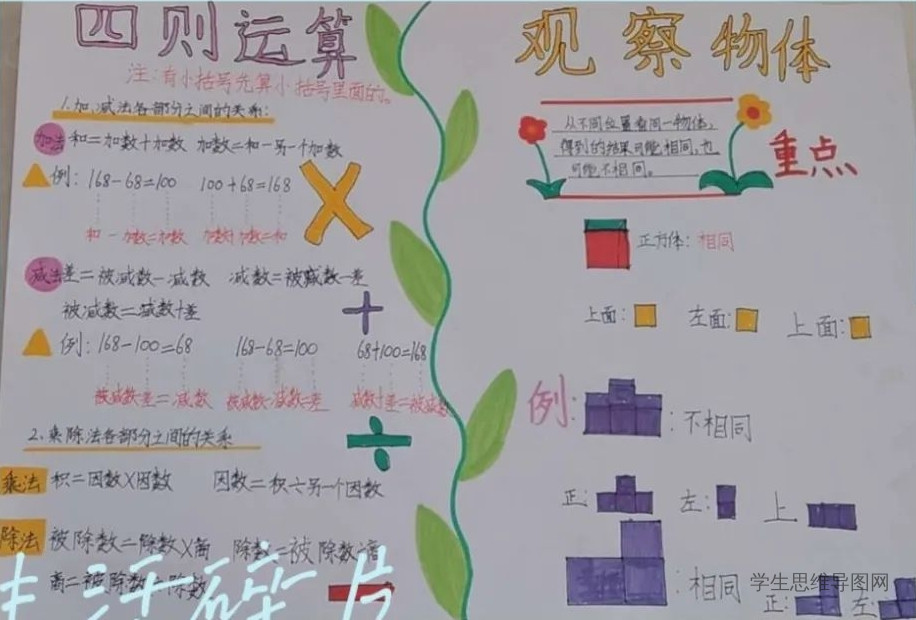 四则运算
注:有小括号先算小括号里面的。
1.加、减法各部分之间的关系:
加法 和=加数+加数 加数=和-另一个加数
例: 168-68=100 100+68=168
和-加数=加数 加数+加数=和
减法 差=被减数-减数 减数=被减数-差
被减数=减数+差
例: 168-100=68 168-68=100 68+100=168
被减数-差=减数 被减数-减数=差 减数+差=被减数
2.乘、除法各部分之间的关系
乘法 积=因数×因数 因数=积÷另一个因数
除法 被除数=除数×商 除数=被除数÷商
商=被除数÷除数
生活碎片
观察物体
从不同位置看同一物体,
得到的结果可能相同,也
可能不相同。
重点
正方体: 相同
上面: 左面: 上面:
例: : 不相同
正: 左: 上
: 相同
正: 左:
学生思维导图网